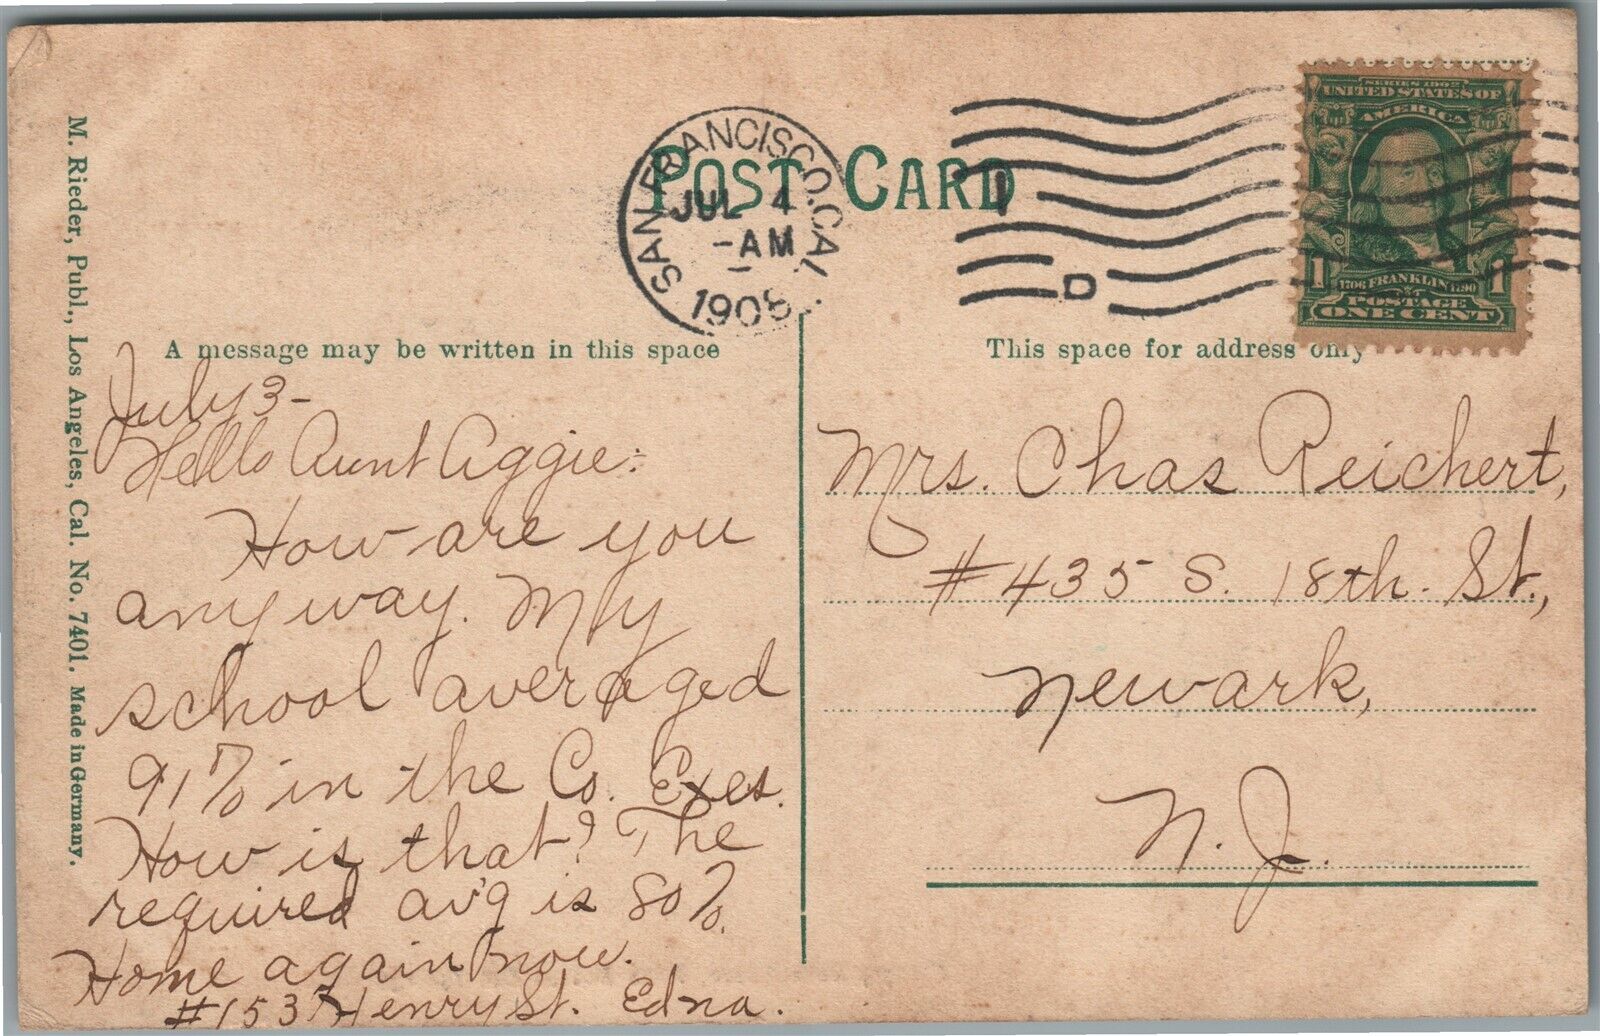 POST CARD
SAN FRANCISCO, CAL.
JUL 4
-AM
1908
D
SERIES 1902
UNITED STATES OF
AMERICA
1 1706 FRANKLIN 1790 1
POSTAGE
ONE CENT
M. Rieder, Publ., Los Angeles, Cal. No. 7401. Made in Germany.
A message may be written in this space
July 3-
Hello Aunt Aggie:
How are you
anyway. My
school averaged
91% in the Co. Exes.
How is that? The
required av'g is 80%.
Home again now.
Henry St. Edna.
This space for address only
Mrs. Chas Reichert,
#435 S. 18th. St.,
Newark,
N. J.